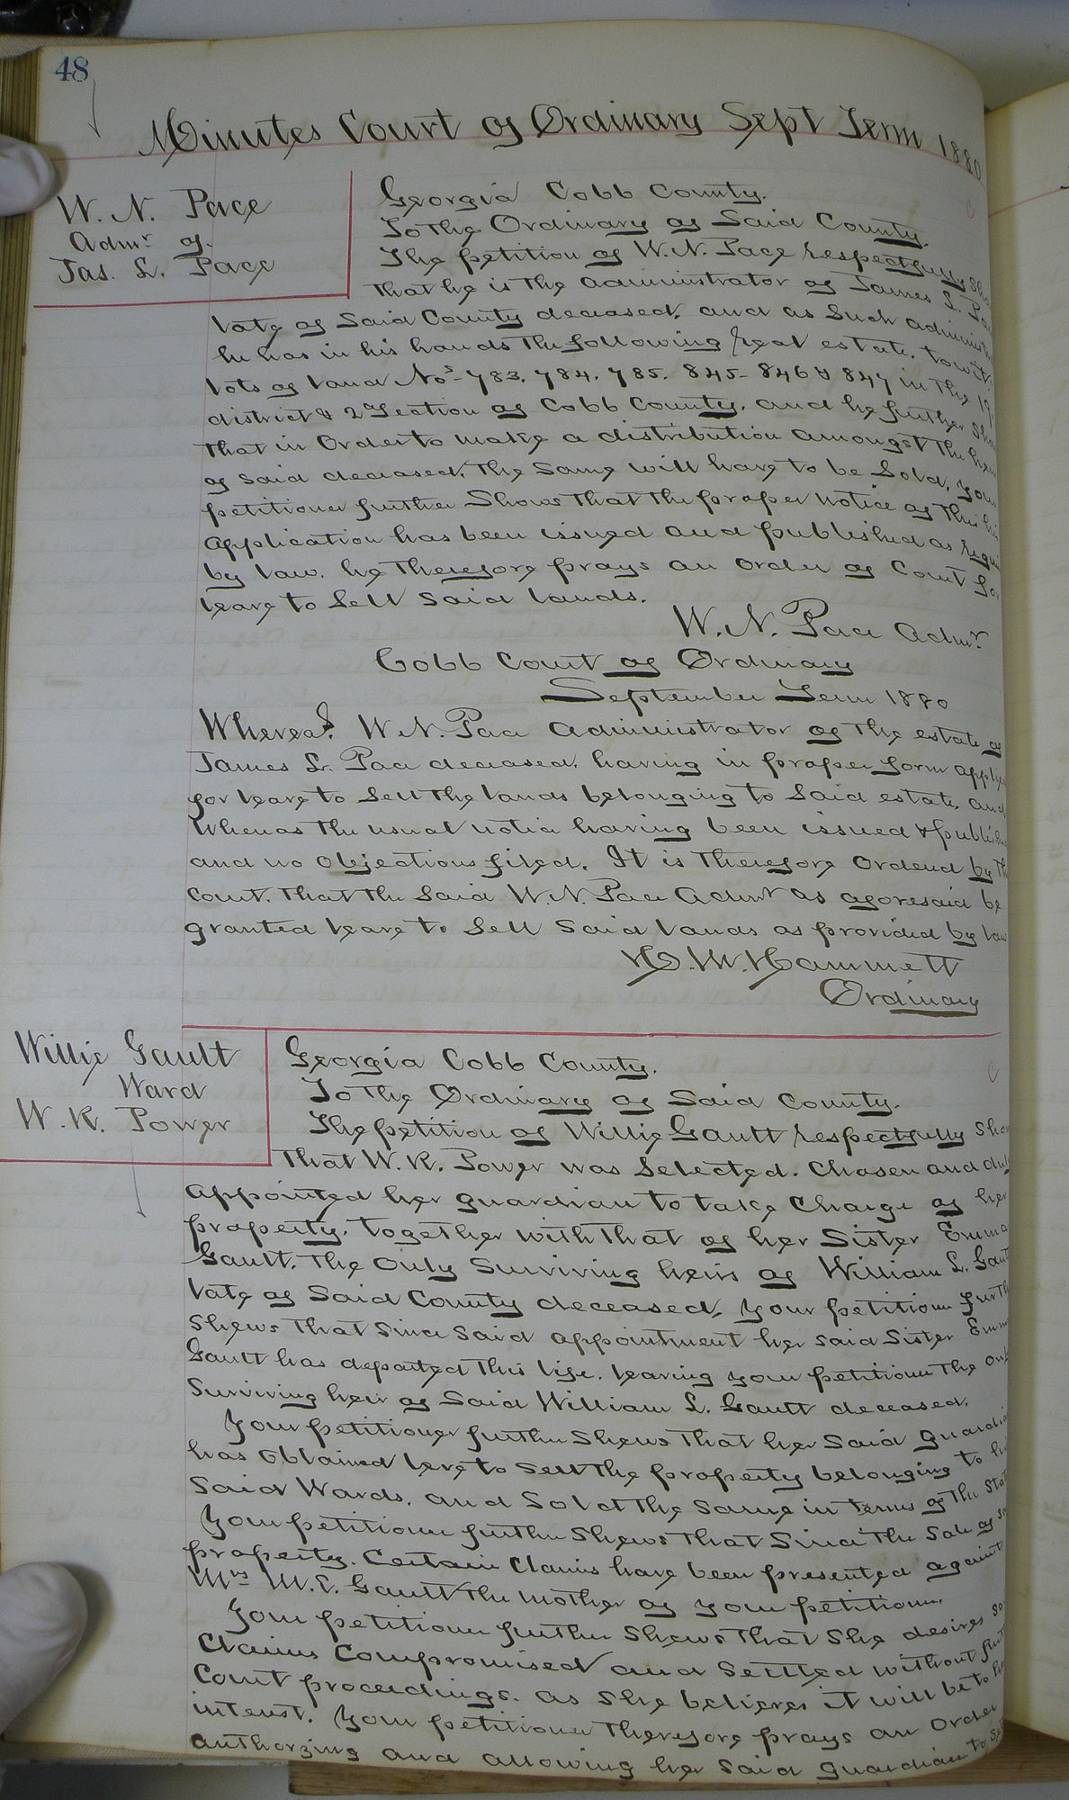 48
Minutes Court of Ordinary Sept Term 1880
W. N. Pace
Admr of
Jas. L. Pace
Georgia Cobb County.
To the Ordinary of Said County.
The petition of W. N. Pace respectfully
that he is the administrator of James L.
late of Said County deceased, and as Such
he has in his hands the following real estate, towit.
lots of land Nos- 783, 784, 785. 845- 846 & 847 in the
district & 2nd Section of Cobb County, and he further
that in Order to make a distribution amongst the
of said deceased, the same will have to be Sold,
petitioner further Shows that the proper notice of this his
application has been issued and published as
by law. he therefore prays an order of Court for
leave to Sell Said lands.
W. N. Pace Admr
Cobb Court of Ordinary
September Term 1880
Whereas, W. N. Pace administrator of the estate of
James L. Pace deceased. having in proper form
for leave to Sell the lands belonging to Said estate, and
Whereas the usual notice having been issued &
and no objections filed. It is therefore ordered by
Court. that the Said W. N. Pace Admr as aforesaid be
granted leave to Sell Said lands as provided by law
H. M. Hammett
Ordinary
Willie Gault
Ward
W. R. Power
Georgia Cobb County.
To the Ordinary of Said County.
The petition of Willie Gault respectfully
that W. R. Power was Selected. Chosen and
appointed her guardian to take Charge of her
property. together with that of her Sister Emma
Gault. the Only Surviving heirs of William L.
late of Said County deceased, Your petitioner
Shews that Since said appointment her said Sister
Gault has departed this life. leaving your petitioner the
Surviving heir of Said William L. Gault deceased.
Your petitioner further Shews that her Said
has obtained leve to sell the property belonging to
Said Wards. and Sold the same in terms of the
Your petitioner further Shews that Since the Sale of
property. Certain Claims have been presented against
Mrs M. E. Gault the mother of your petitioner.
Your petitioner further Shews that She desires
Claims Compromised and settled without
Court proceedings. as She believes it will be to
interest. Your petitioner therefore prays an order
authorzing and allowing her Said guardian to